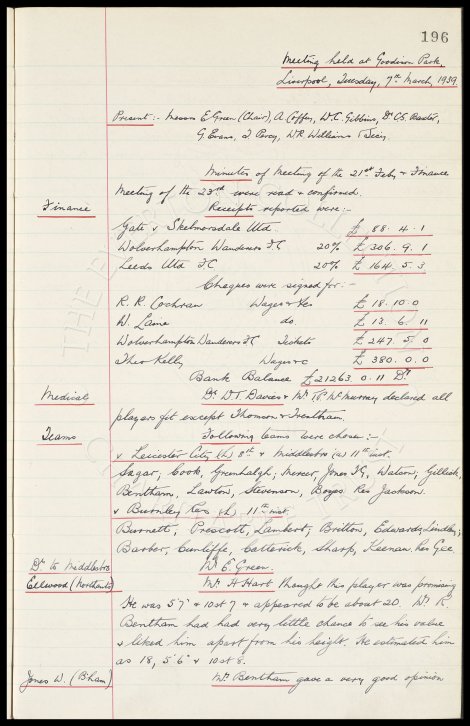 196
Meeting held at Goodison Park,
Liverpool, Tuesday, 7th March 1939.
Present:- Messrs E. Green (Chair), A. Coffey, W.C. Gibbins, Dr C.S. Baxter,
G. Evans, J. Percy, W.R. Williams & Secy.
Minutes of Meeting of the 21st Feby & Finance
Meeting of the 23rd were read & confirmed.
Finance
Receipts reported were:-
Gate v Skelmersdale Utd. £ 88. 4. 1
Wolverhampton Wanderers F.C 20% £ 306. 9. 1
Leeds Utd F.C 20% £ 164. 5. 3
Cheques were signed for:-
R. R. Cochran Wages & £ 18. 10. 0
W. Laine do. £ 13. 6. 11
Wolverhampton Wanderers F.C Tickets £ 247. 5. 0
Theo Kelly Wages &c £ 380. 0. 0
Bank Balance £21263. 0. 11 Dr
Medical
Dr W.T. Davies & Mr McMurray declared all
players fit except Thomson & Trentham.
Teams
Following teams were chosen:-
v Leicester City (h) 8th & Middlesbro (a) 11th inst.
Sagar, Cook, Greenhalgh; Mercer, Jones T.G, Watson; Gillick,
Bentham, Lawton, Stevenson, Boyes. Res Jackson.
v Burnley Res (h) 11th inst.
Burnett, Prescott, Lambert; Britton, Edwards, Lindley;
Barber, Cunliffe, Catterick, Sharp, Keenan. Res Gee
Dr to Middlesbro
Mr E. Green.
Ellwood (Northants)
Mr H Hart thought this player was promising
He was 5'7" & 10st 7 & appeared to be about 20. Mr R.
Bentham had had very little chance to see his value
& liked him apart from his height. He estimated him
as 18, 5'6" & 10st 8.
Jones W. (B'ham)
Mr Bentham gave a very good opinion